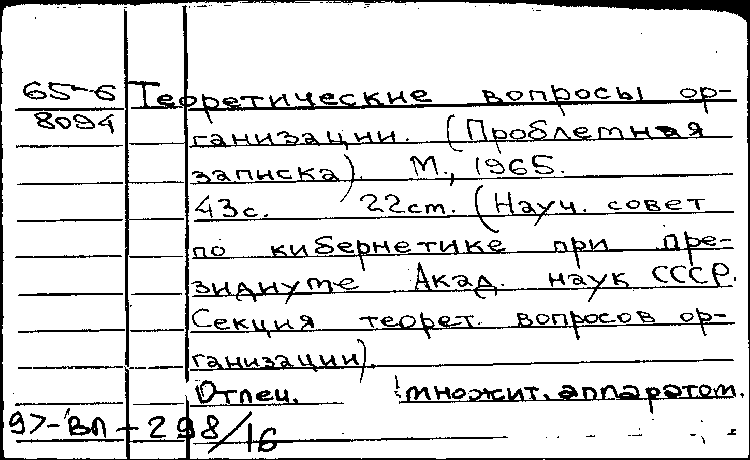 65-6 Теоретические вопросы ор-
8094 ганизации. (Проблемная
записка). М., 1965.
43с. 22см. (Науч. совет
по кибернетике при пре-
зидиуме Акад. наук СССР.
Секция теорет. вопросов ор-
ганизации).
Отпеч. множит. аппаратом.
97-ВЛ-298/16